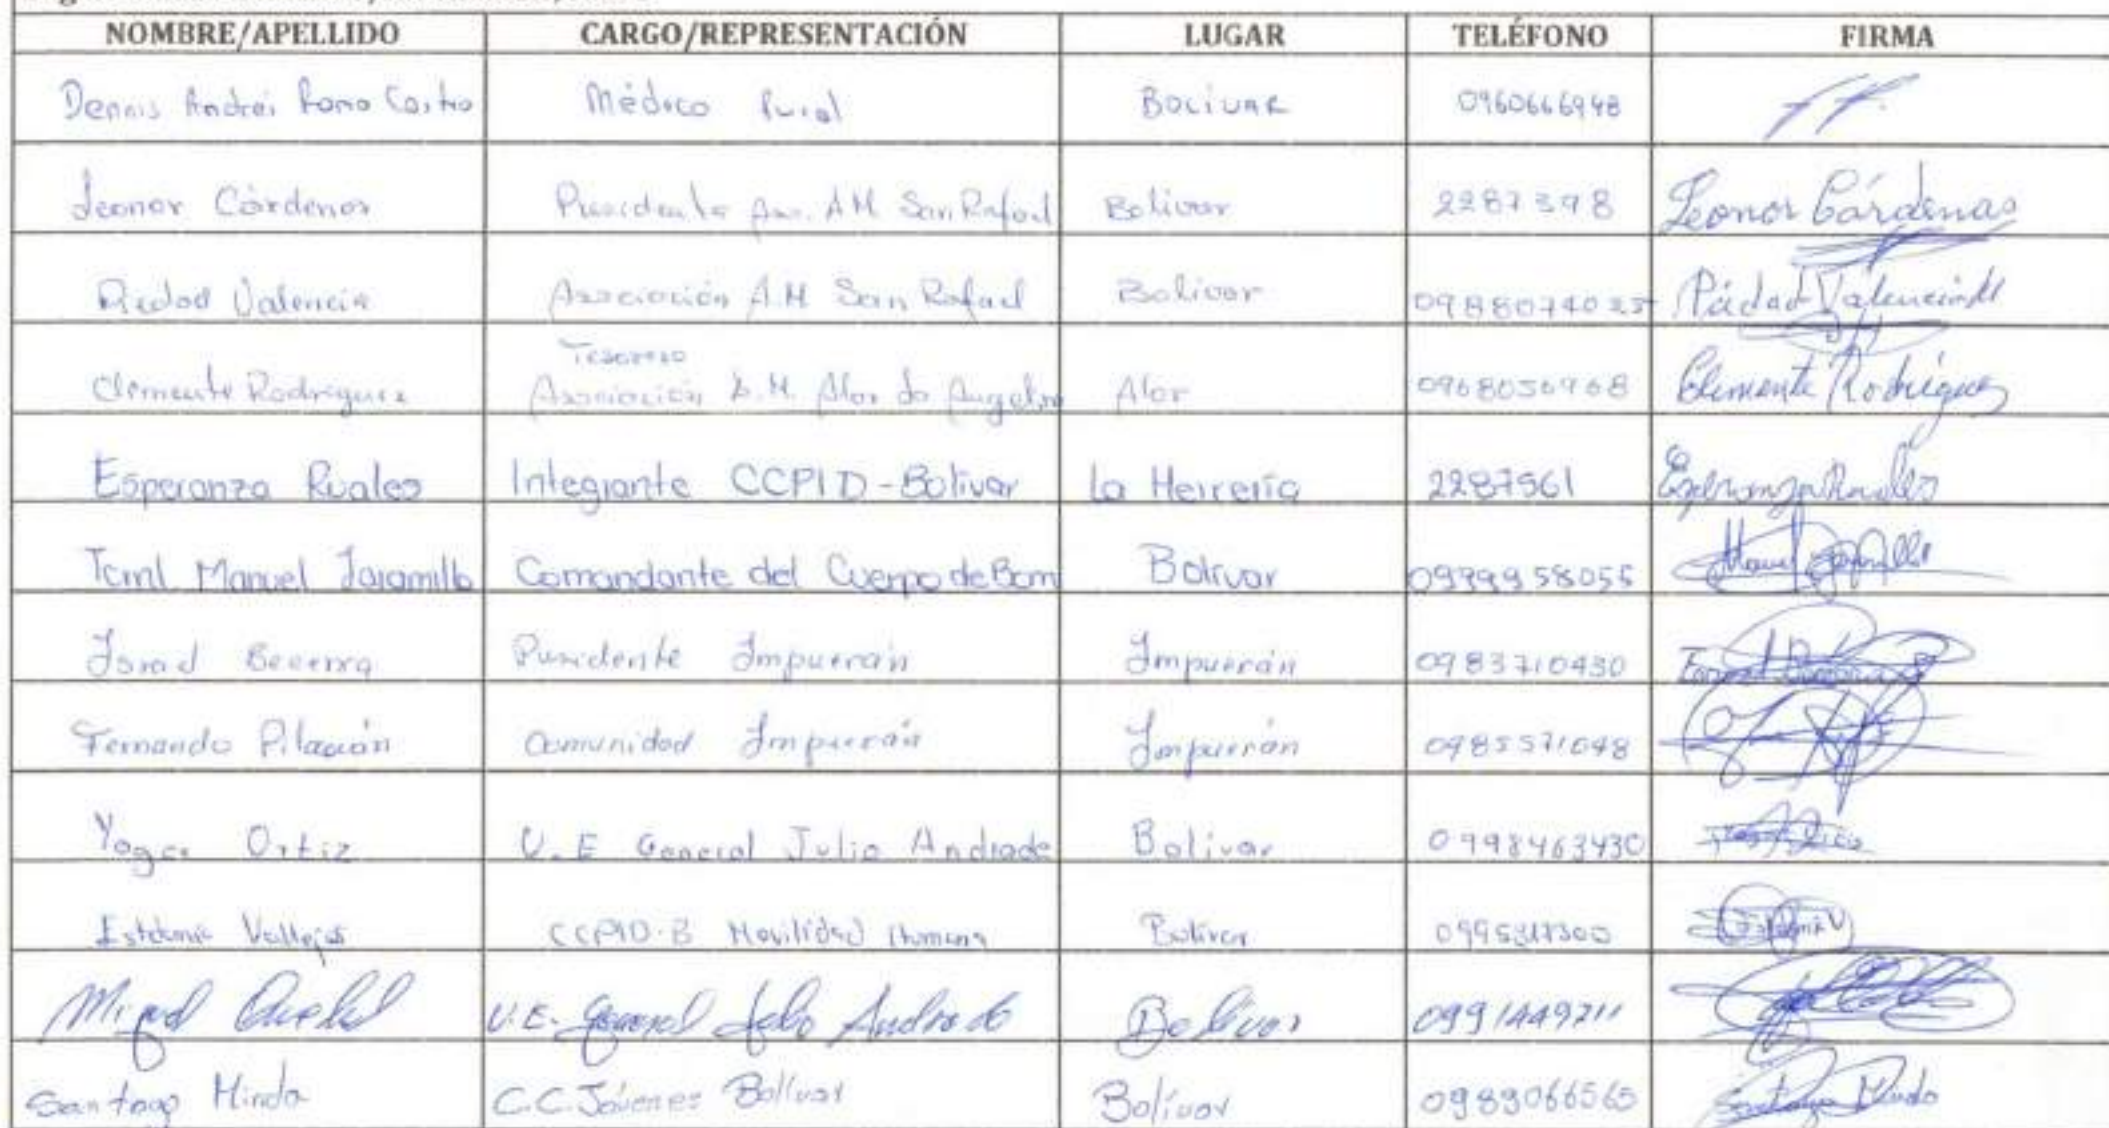 NOMBRE/APELLIDO CARGO/REPRESENTACIÓN LUGAR TELÉFONO FIRMA
Dennis Andrei Castro Médico Rural BOLIVAR 0960666948
Leonor Cárdenas Presidenta A.M San Rafael Bolivar 2287398 Leonor Cárdenas
Piedad Valencia Asociación A.M San Rafael Bolivar 0988074025 Valencia
Tesorero
Clemente Rodriguez Asociación A.M Alor Alor 0968056968 Clemente Rodriguez
Esperanza Ruales Integrante CCPID-Bolivar La Herrería 2287561 Esperanza Ruales
Tcrnl Manuel Jaramillo Comandante del Cuerpo de Bom Bolivar 0999958055 Manuel
Becerra Presidente Impuerán Impuerán 0983710430
Fernando Comunidad Impuerán Impuerán 0985571048
Ortiz U.E General Julio Andrade Bolivar 0998463430
Vallejos CCPID-B Movilidad Humana Bolivar
U.E. General Julio Andrade Bolívar
Santiago Minda C.C. Jóvenes Bolívar Bolívar 0989066565 Santiago Minda